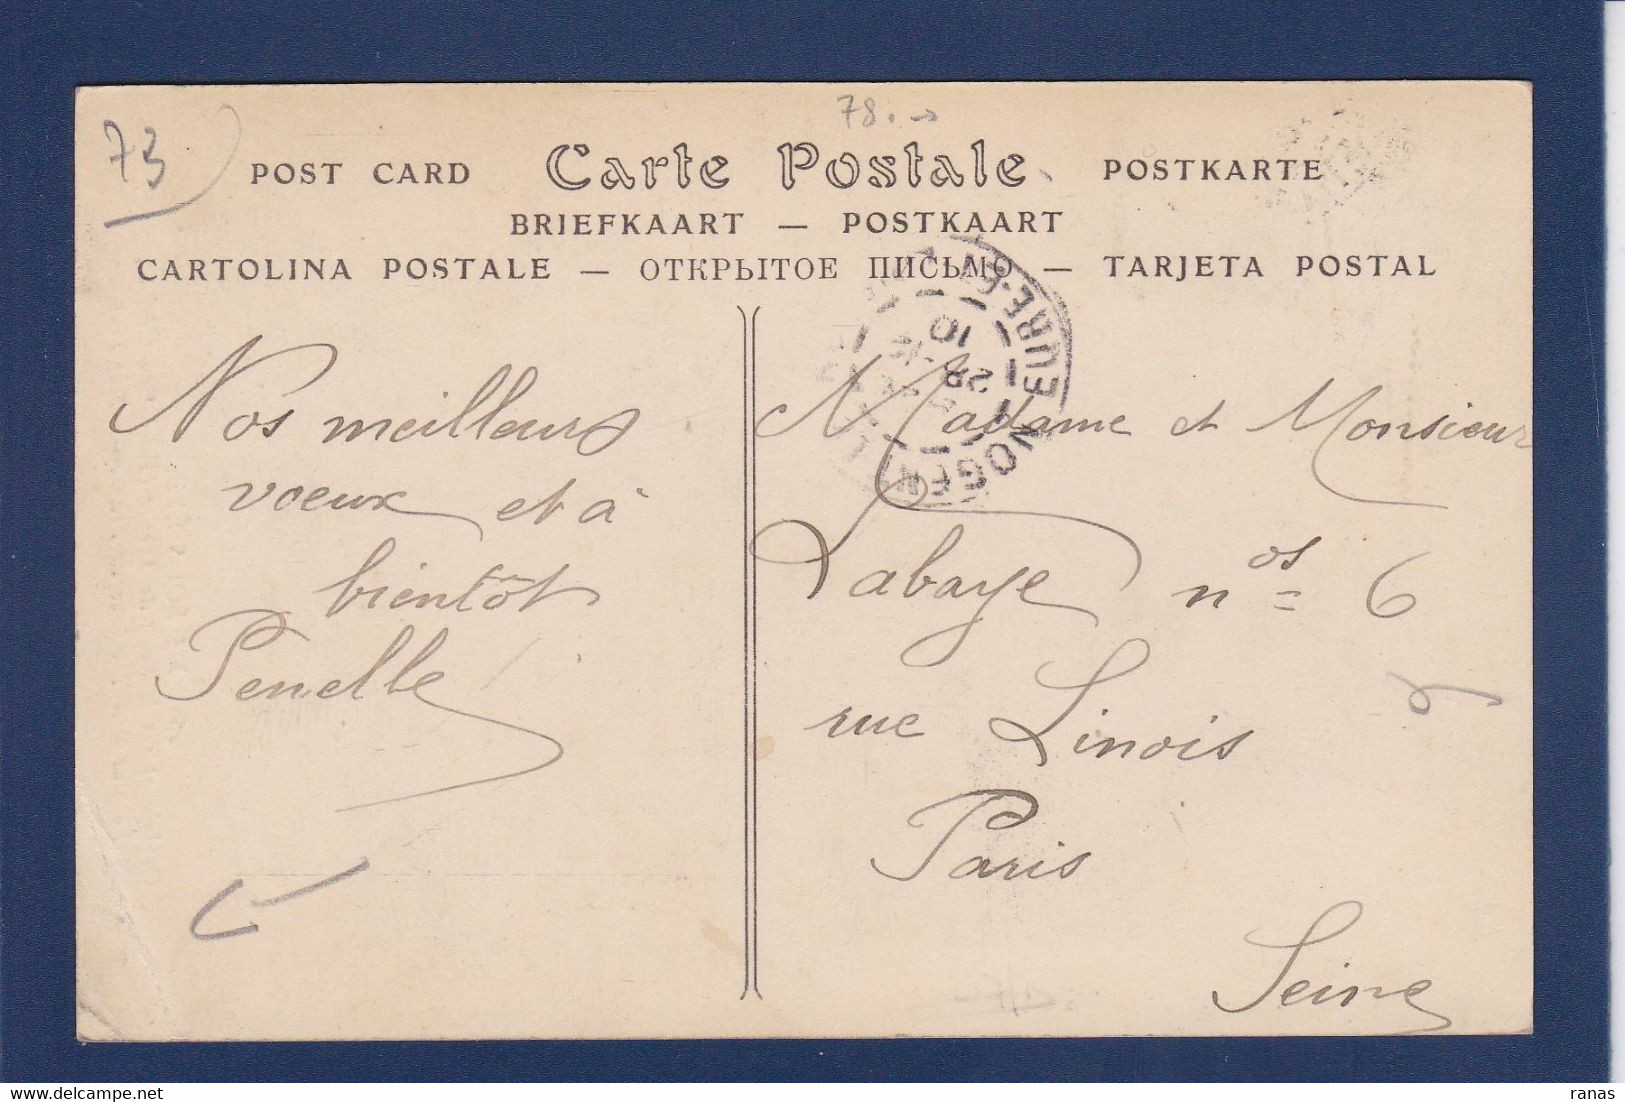 73
78.
POST CARD Carte Postale POSTKARTE
BRIEFKAART — POSTKAART
CARTOLINA POSTALE — ОТКРЫТОЕ ПИСЬМО — TARJETA POSTAL
EURE-
10
28
NOGEN
Nos meilleurs
voeux et à
bientôt
Penelle
Madame et Monsieur
Labaye nos = 6
rue Linois
Paris
Seine
ranas